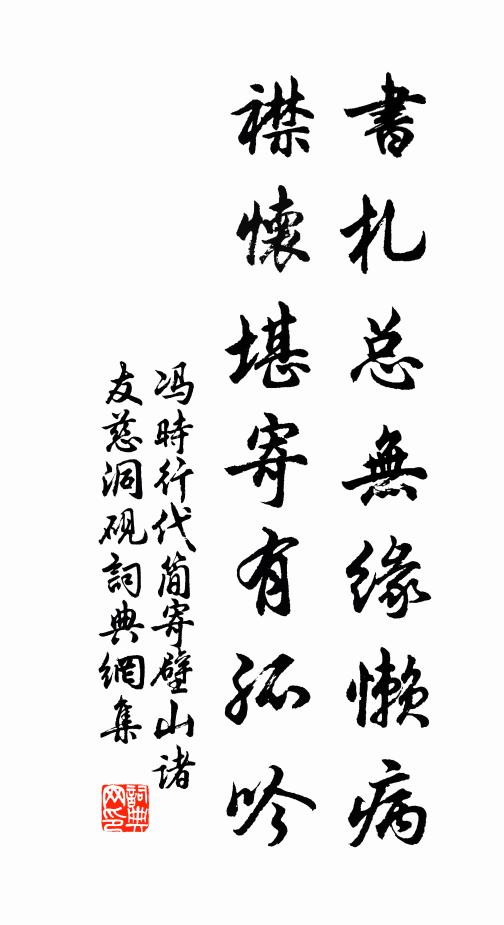 書札总無缘懒病
襟懷堪寄有孤吟
冯時行代简寄壁山諸
友慈洞砚詞典網集
詞典网印